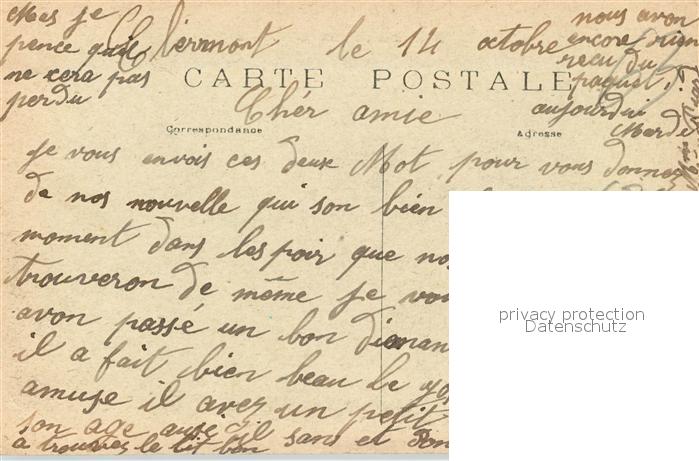 Mas je
pence quil
ne cera pas
perdu
Clérmont le 14 octobre
nous avon
encore rien
recu du
paquet
aujourdui
Mardi
CARTE POSTALE
Chér amie
Correspondance
Adresse
Je vous envois ces deux Mot pour vous donner
de nos nouvelle qui son bien
moment dans lespoir que
trouveron de même je
avon passé un bon
il a fait bien beau le
amuse il avez un petit
son age ausi il sans et
a trouver le tit bon
privacy protection
Datenschutz